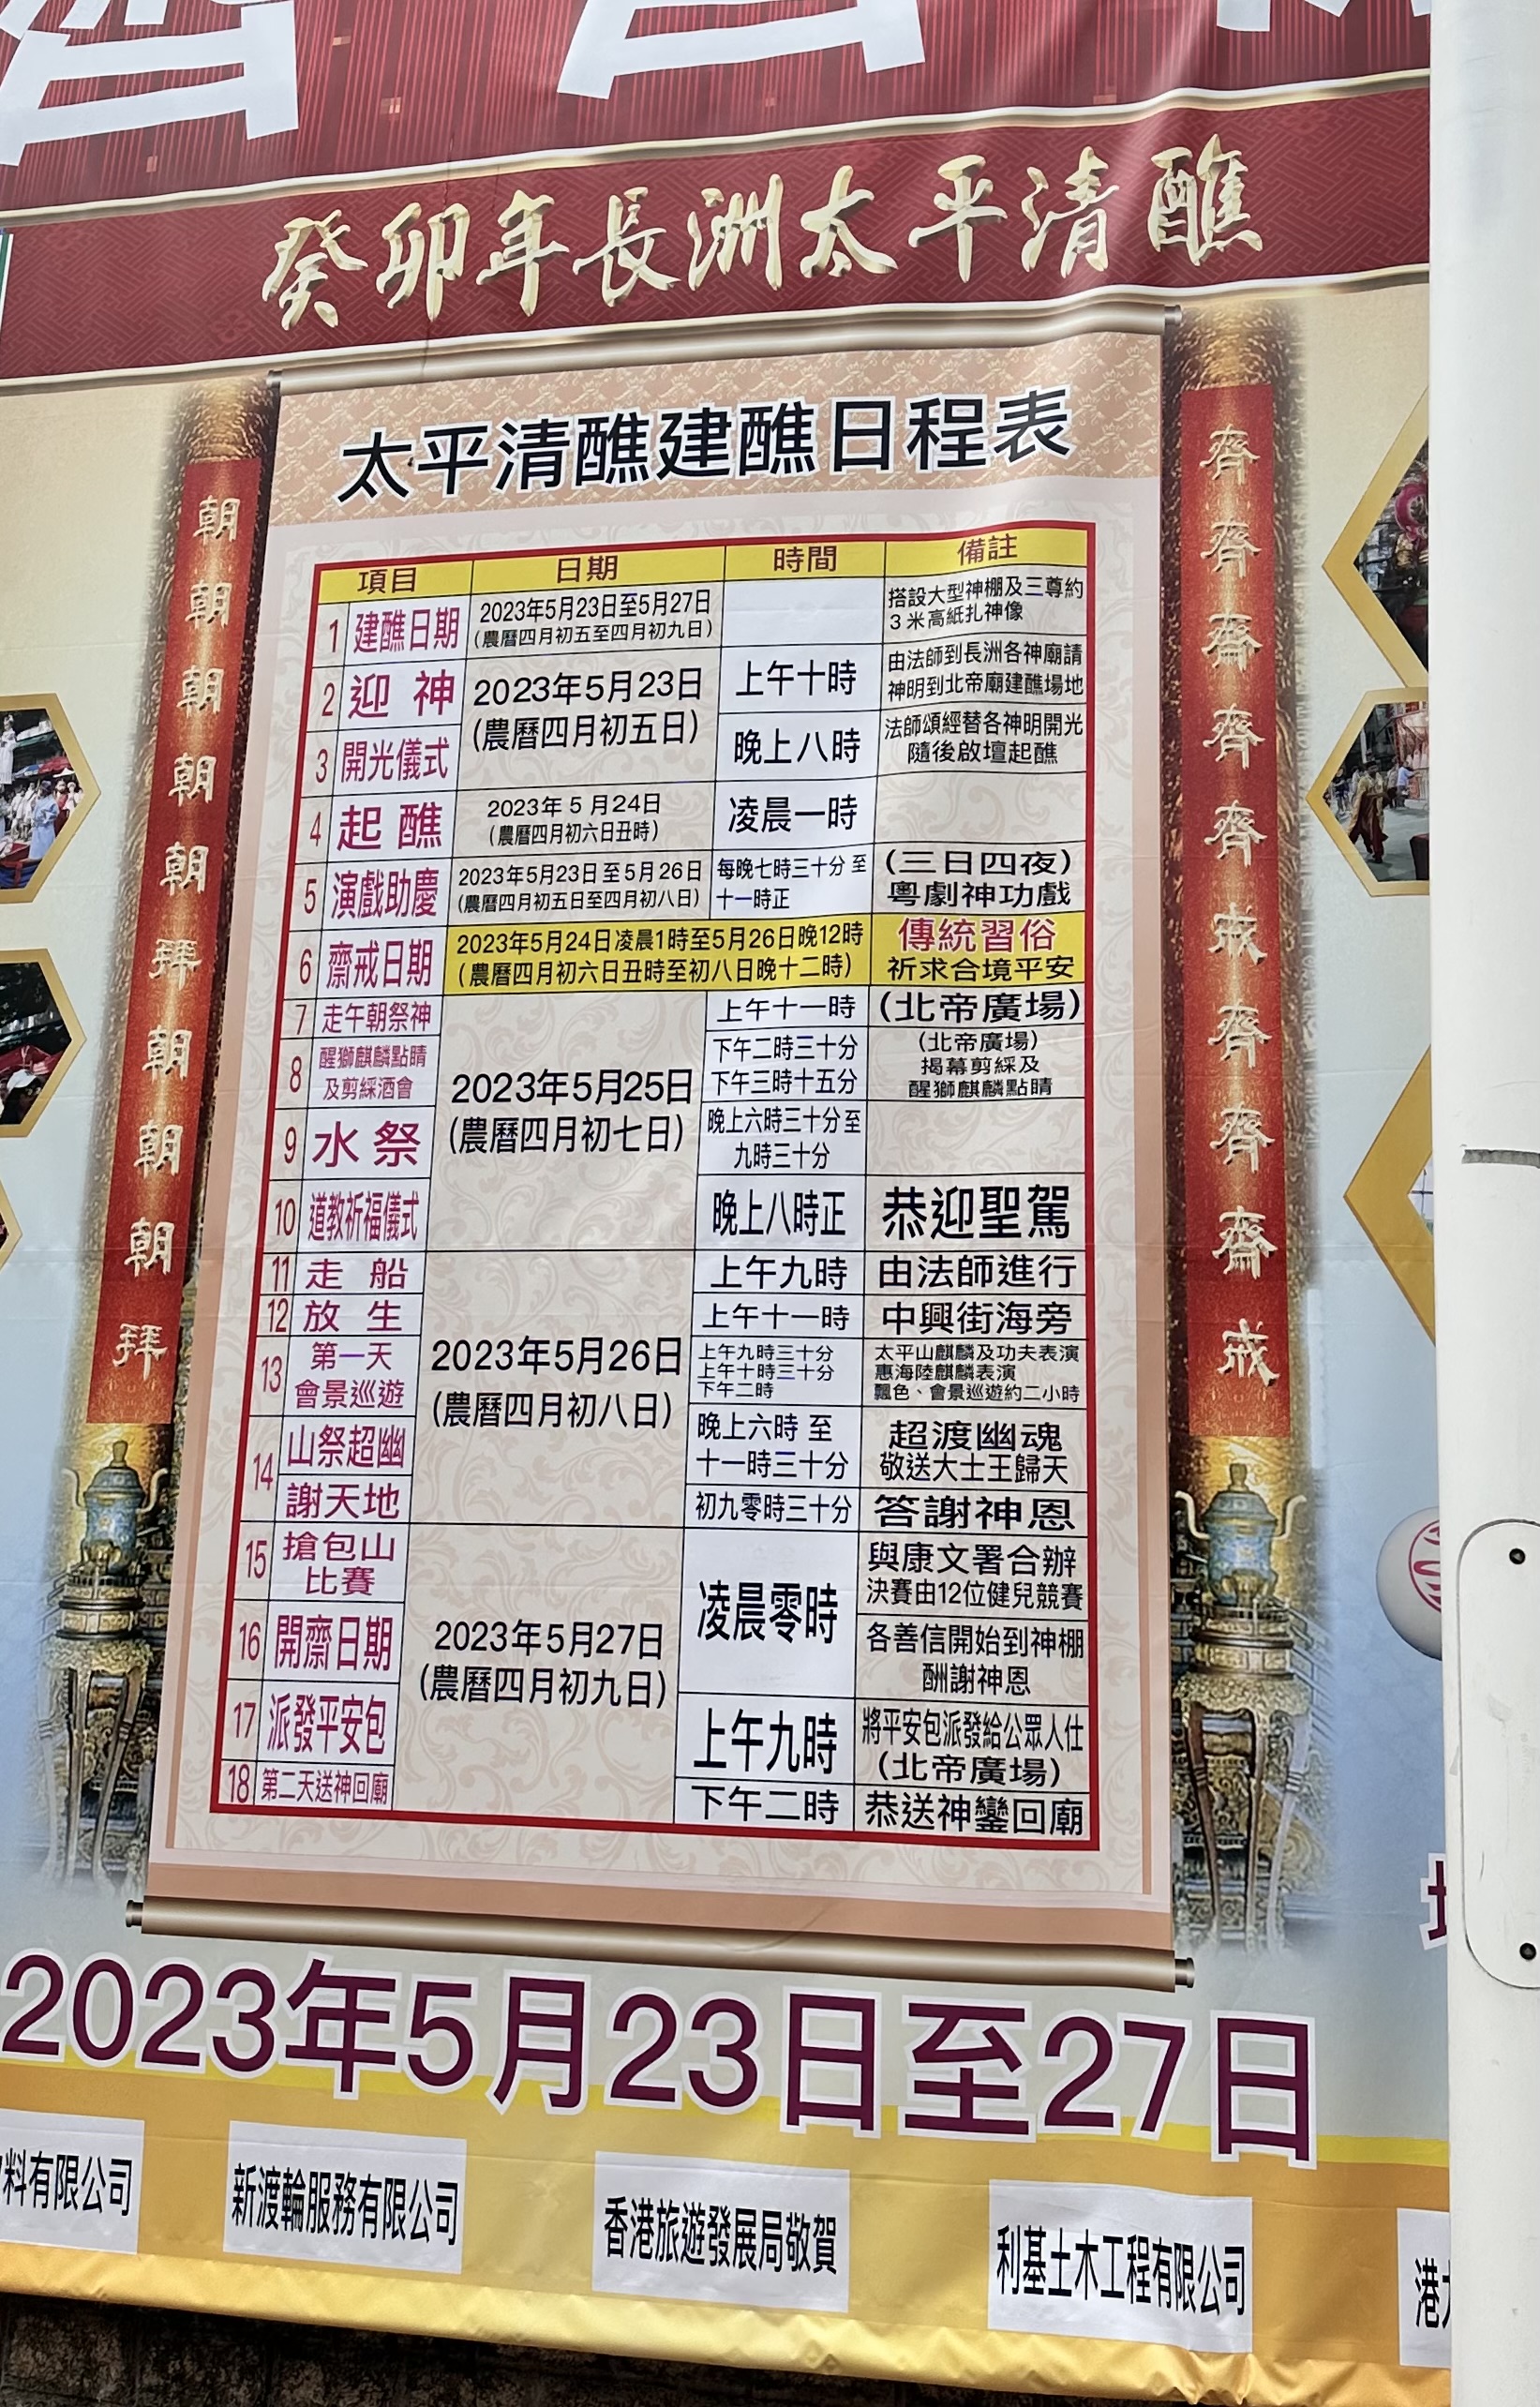 癸卯年長洲太平清醮
太平清醮建醮日程表
朝朝朝朝朝拜朝朝朝拜
齊齊齋齊齊戒齊齊齋戒
項目 日期 時間 備註
1 建醮日期 2023年5月23日至5月27日
(農曆四月初五至四月初九日)
搭設大型神棚及三尊約
3米高紙扎神像
2 迎神 2023年5月23日
(農曆四月初五日)
上午十時
由法師到長洲各神廟請
神明到北帝廟建醮場地
3 開光儀式 晚上八時
法師頌經替各神明開光
隨後啟壇起醮
4 起醮 2023年5月24日
(農曆四月初六日丑時)
凌晨一時
5 演戲助慶 2023年5月23日至5月26日
(農曆四月初五日至四月初八日)
每晚七時三十分至
十一時正
(三日四夜)
粵劇神功戲
6 齋戒日期 2023年5月24日凌晨1時至5月26日晚12時
(農曆四月初六日丑時至初八日晚十二時)
傳統習俗
祈求合境平安
7 走午朝祭神 2023年5月25日
(農曆四月初七日)
上午十一時 (北帝廣場)
8 醒獅麒麟點睛
及剪綵酒會
下午二時三十分
下午三時十五分
(北帝廣場)
揭幕剪綵及
醒獅麒麟點睛
9 水祭 晚上六時三十分至
九時三十分
10 道教祈福儀式 晚上八時正 恭迎聖駕
11 走船 2023年5月26日
(農曆四月初八日)
上午九時 由法師進行
12 放生 上午十一時 中興街海旁
13 第一天
會景巡遊
上午九時三十分
上午十時三十分
下午二時
太平山麒麟及功夫表演
惠海陸麒麟表演
飄色、會景巡遊約二小時
14 山祭超幽
晚上六時至
十一時三十分
超渡幽魂
敬送大士王歸天
謝天地 初九零時三十分 答謝神恩
15 搶包山
比賽
2023年5月27日
(農曆四月初九日)
凌晨零時
與康文署合辦
決賽由12位健兒競賽
16 開齋日期
各善信開始到神棚
酬謝神恩
17 派發平安包 上午九時
將平安包派發給公眾人仕
(北帝廣場)
18 第二天送神回廟 下午二時 恭送神鑾回廟
2023年5月23日至27日
料有限公司
新渡輪服務有限公司
香港旅遊發展局敬賀
利基土木工程有限公司
港